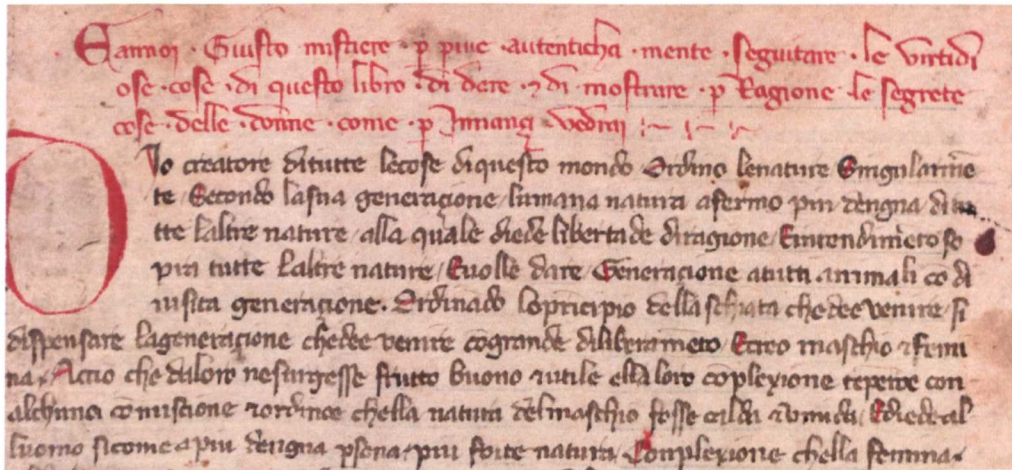 Eannoi · Giusto mistiere · p piue · autenticha · mente · seguitare · le virtudi
ose · cose · di questo libro · di dare · ⁊ di · mostrare · p Ragione · le segrete
cose · delle · donne · come · p Innançi · vedrai
DIo creatore ditutte lecose diquesto mondo Ordino lenature Singularmē
te Secondo lasua generaçione / lumana natura afermo piu dengna ditu
tte laltre nature / alla quale diede libertade diragione / Eintendimēto so
pra tutte laltre nature / Euolle dare Generaçione atutti animali cō di
uisita generaçione · Ordinādo loprīcipio dellaschiata chedee venire / si
dispensare lageneraçione chedee venire cōgrande diliberamēto / Ecreo maschio ⁊ femi
na / Accio che daloro nesurgesse frutto buono ⁊ utile ella loro cōplexione tēperoe con
alchuna cōmistione ⁊ ordinoe chella natura del maschio fosse calda ⁊ umida / Ediede al
luomo sicome a piu dengna psona / piu forte natura / Conplexione chella femina ·